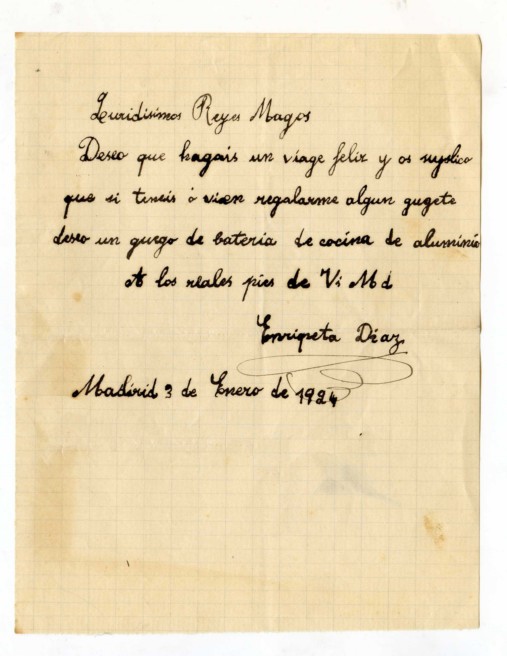 Queridisimos Reyes Magos
Deseo que hagais un viage feliz y os suplico
que si teneis ó vien regalarme algun gugete
deseo un guego de bateria de cocina de aluminio
A los reales pies de V. M d
Enriqueta Diaz
Madirid 3 de Enero de 1924